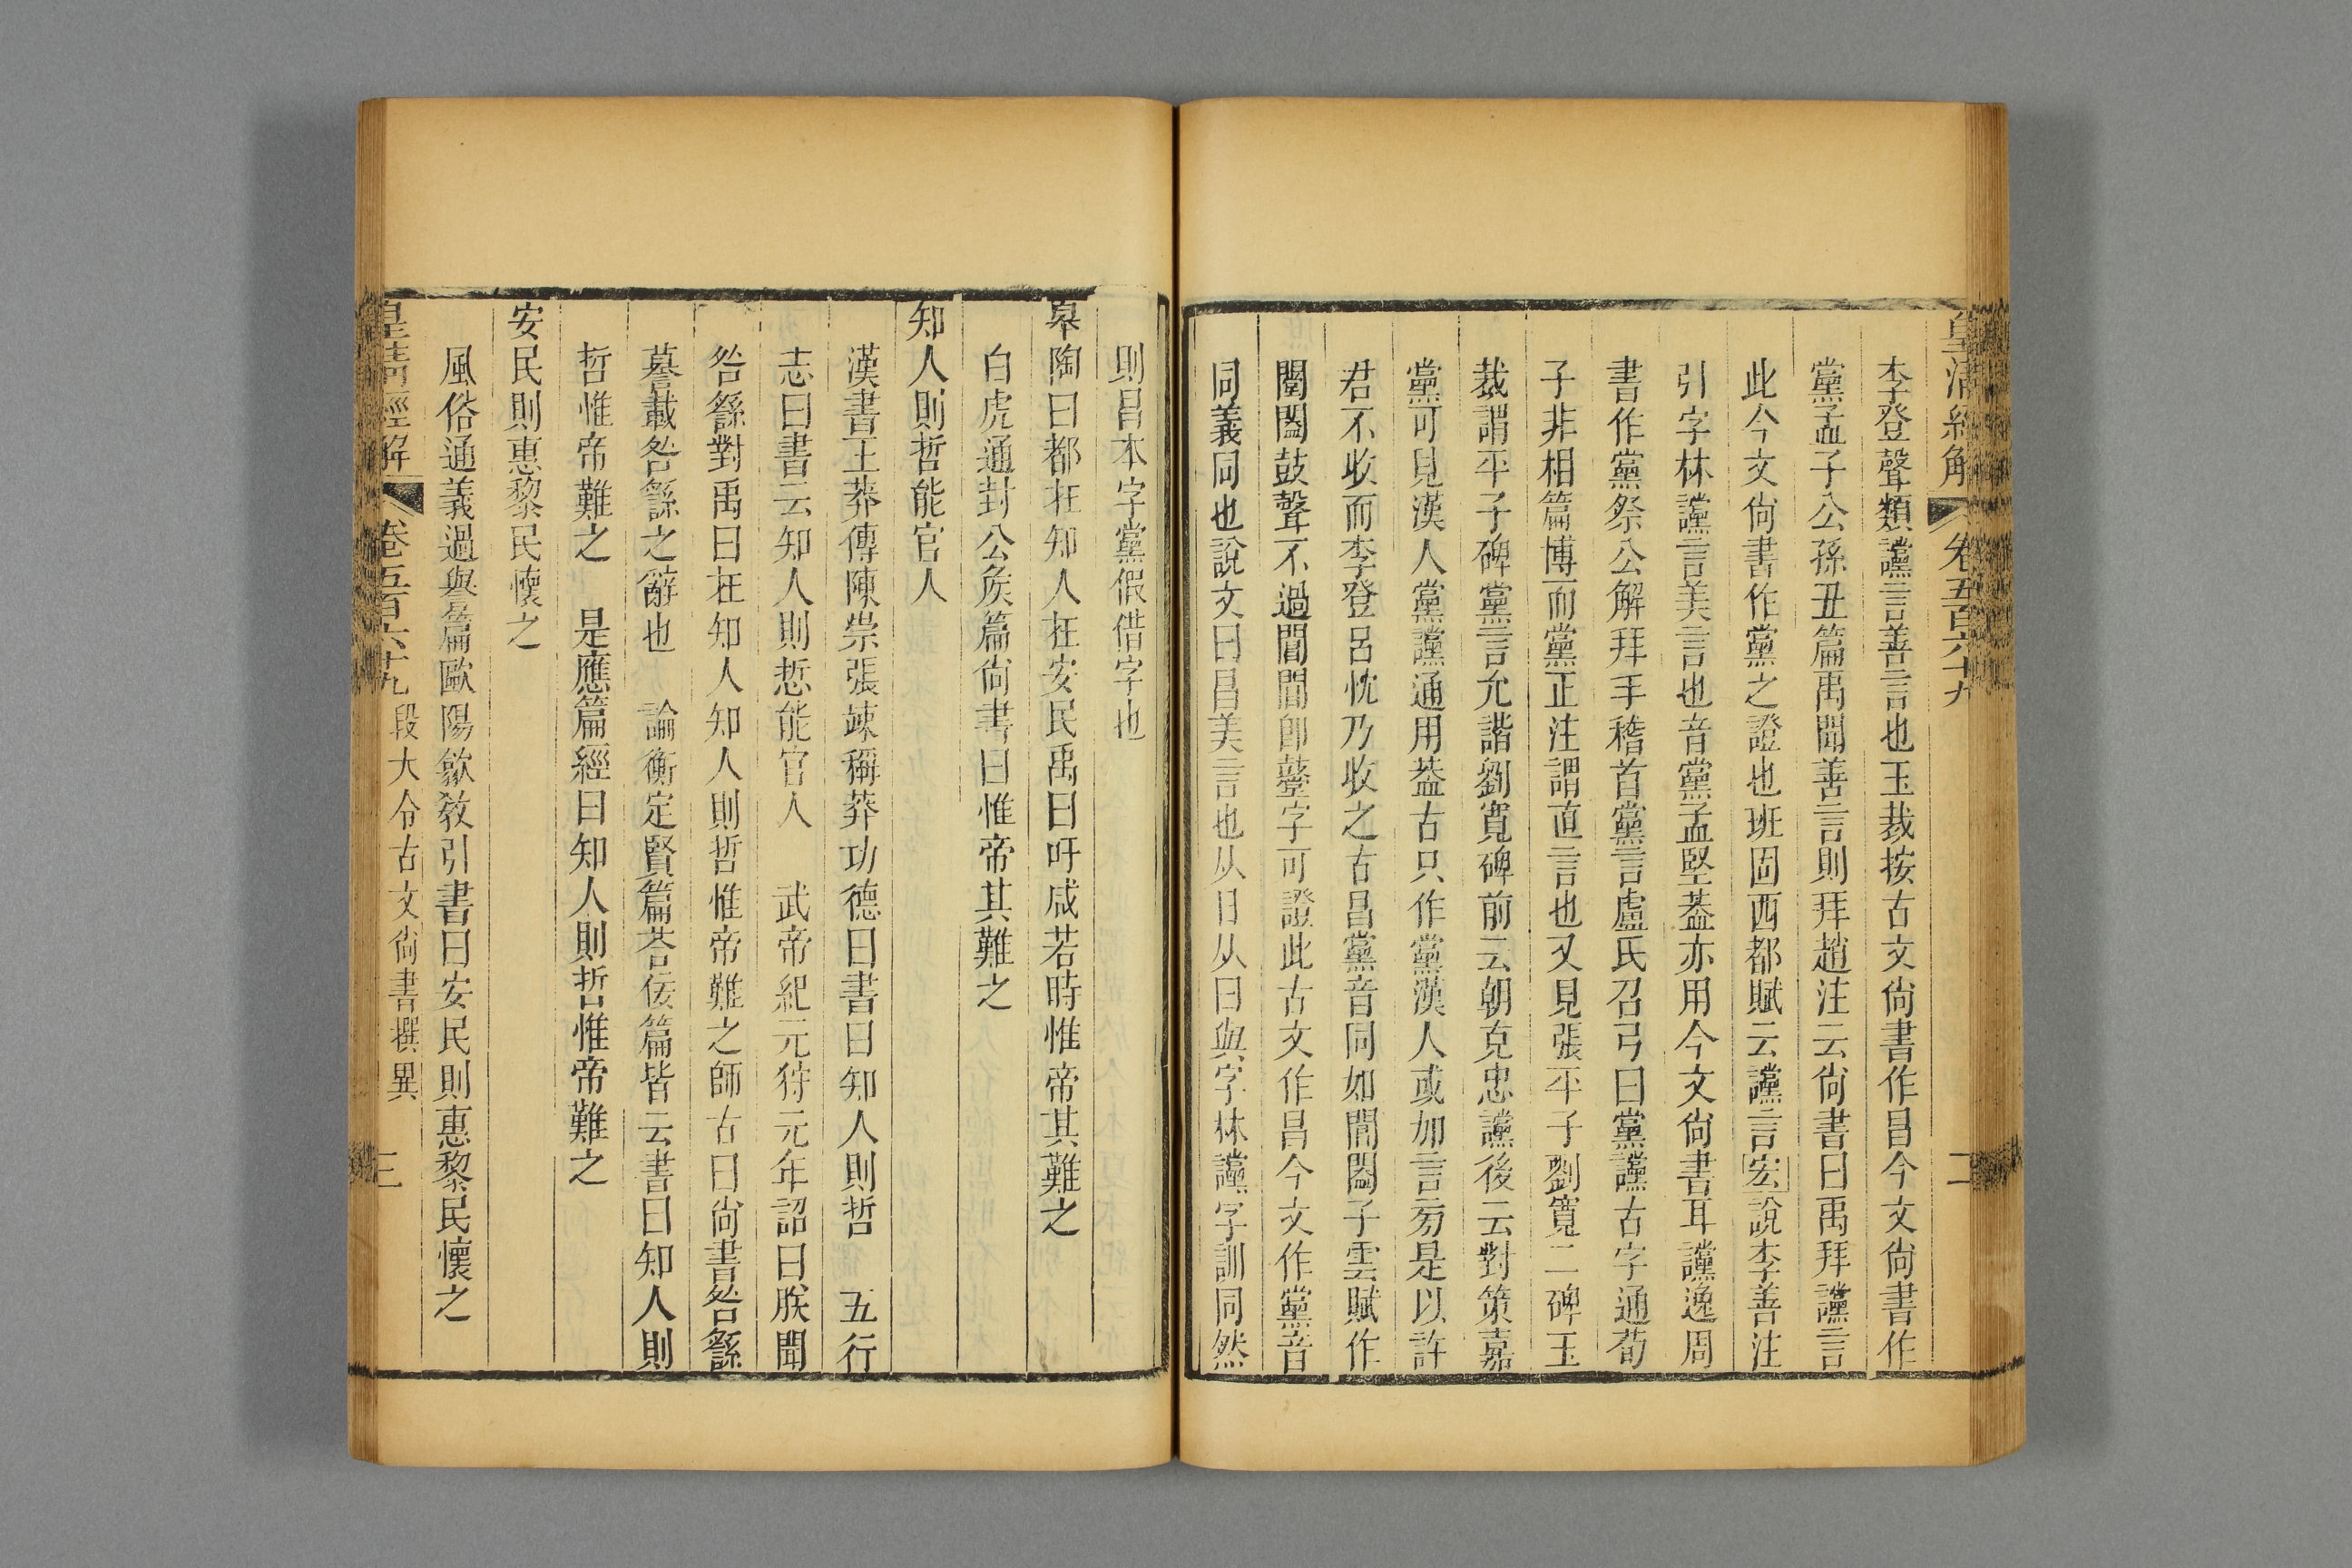 皇清經解 卷五百六十九 二
李登聲類讜言善言也玉裁按古文尙書作昌今文尙書作
黨孟子公孫丑篇禹聞善言則拜趙注云尙書曰禹拜讜言
此今文尙書作黨之證也班固西都賦云讜言宏說李善注
引字林讜言美言也音黨孟堅葢亦用今文尙書耳讜逸周
書作黨祭公解拜手稽首黨言盧氏召弓曰黨讜古字通荀
子非相篇博而黨正注謂直言也又見張平子劉寬二碑玉
裁謂平子碑黨言允諧劉寬碑前云朝克忠讜後云對策嘉
黨可見漢人黨讜通用葢古只作黨漢人或加言㫄是以許
君不收而李登呂忱乃收之古昌黨音同如閶闔子雲賦作
閶闔鼓聲不過閶閶卽鼞字可證此古文作昌今文作黨音
同義同也說文曰昌美言也从日从曰與字林讜字訓同然
則昌本字黨假借字也
皋陶曰都在知人在安民禹曰吁咸若時惟帝其難之
白虎通封公矦篇尙書曰惟帝其難之
知人則哲能官人
漢書王莽傳陳崇張竦稱莽功德曰書曰知人則哲 五行
志曰書云知人則悊能官人 武帝紀元狩元年詔曰朕聞
咎繇對禹曰在知人知人則哲惟帝難之師古曰尙書咎繇
謩載咎繇之辭也 論衡定賢篇荅佞篇皆云書曰知人則
哲惟帝難之 是應篇經曰知人則哲惟帝難之
安民則惠黎民懷之
風俗通義過與篇歐陽歙敎引書曰安民則惠黎民懷之
皇淸經解 卷五百六十九 段大令古文尙書撰異 三